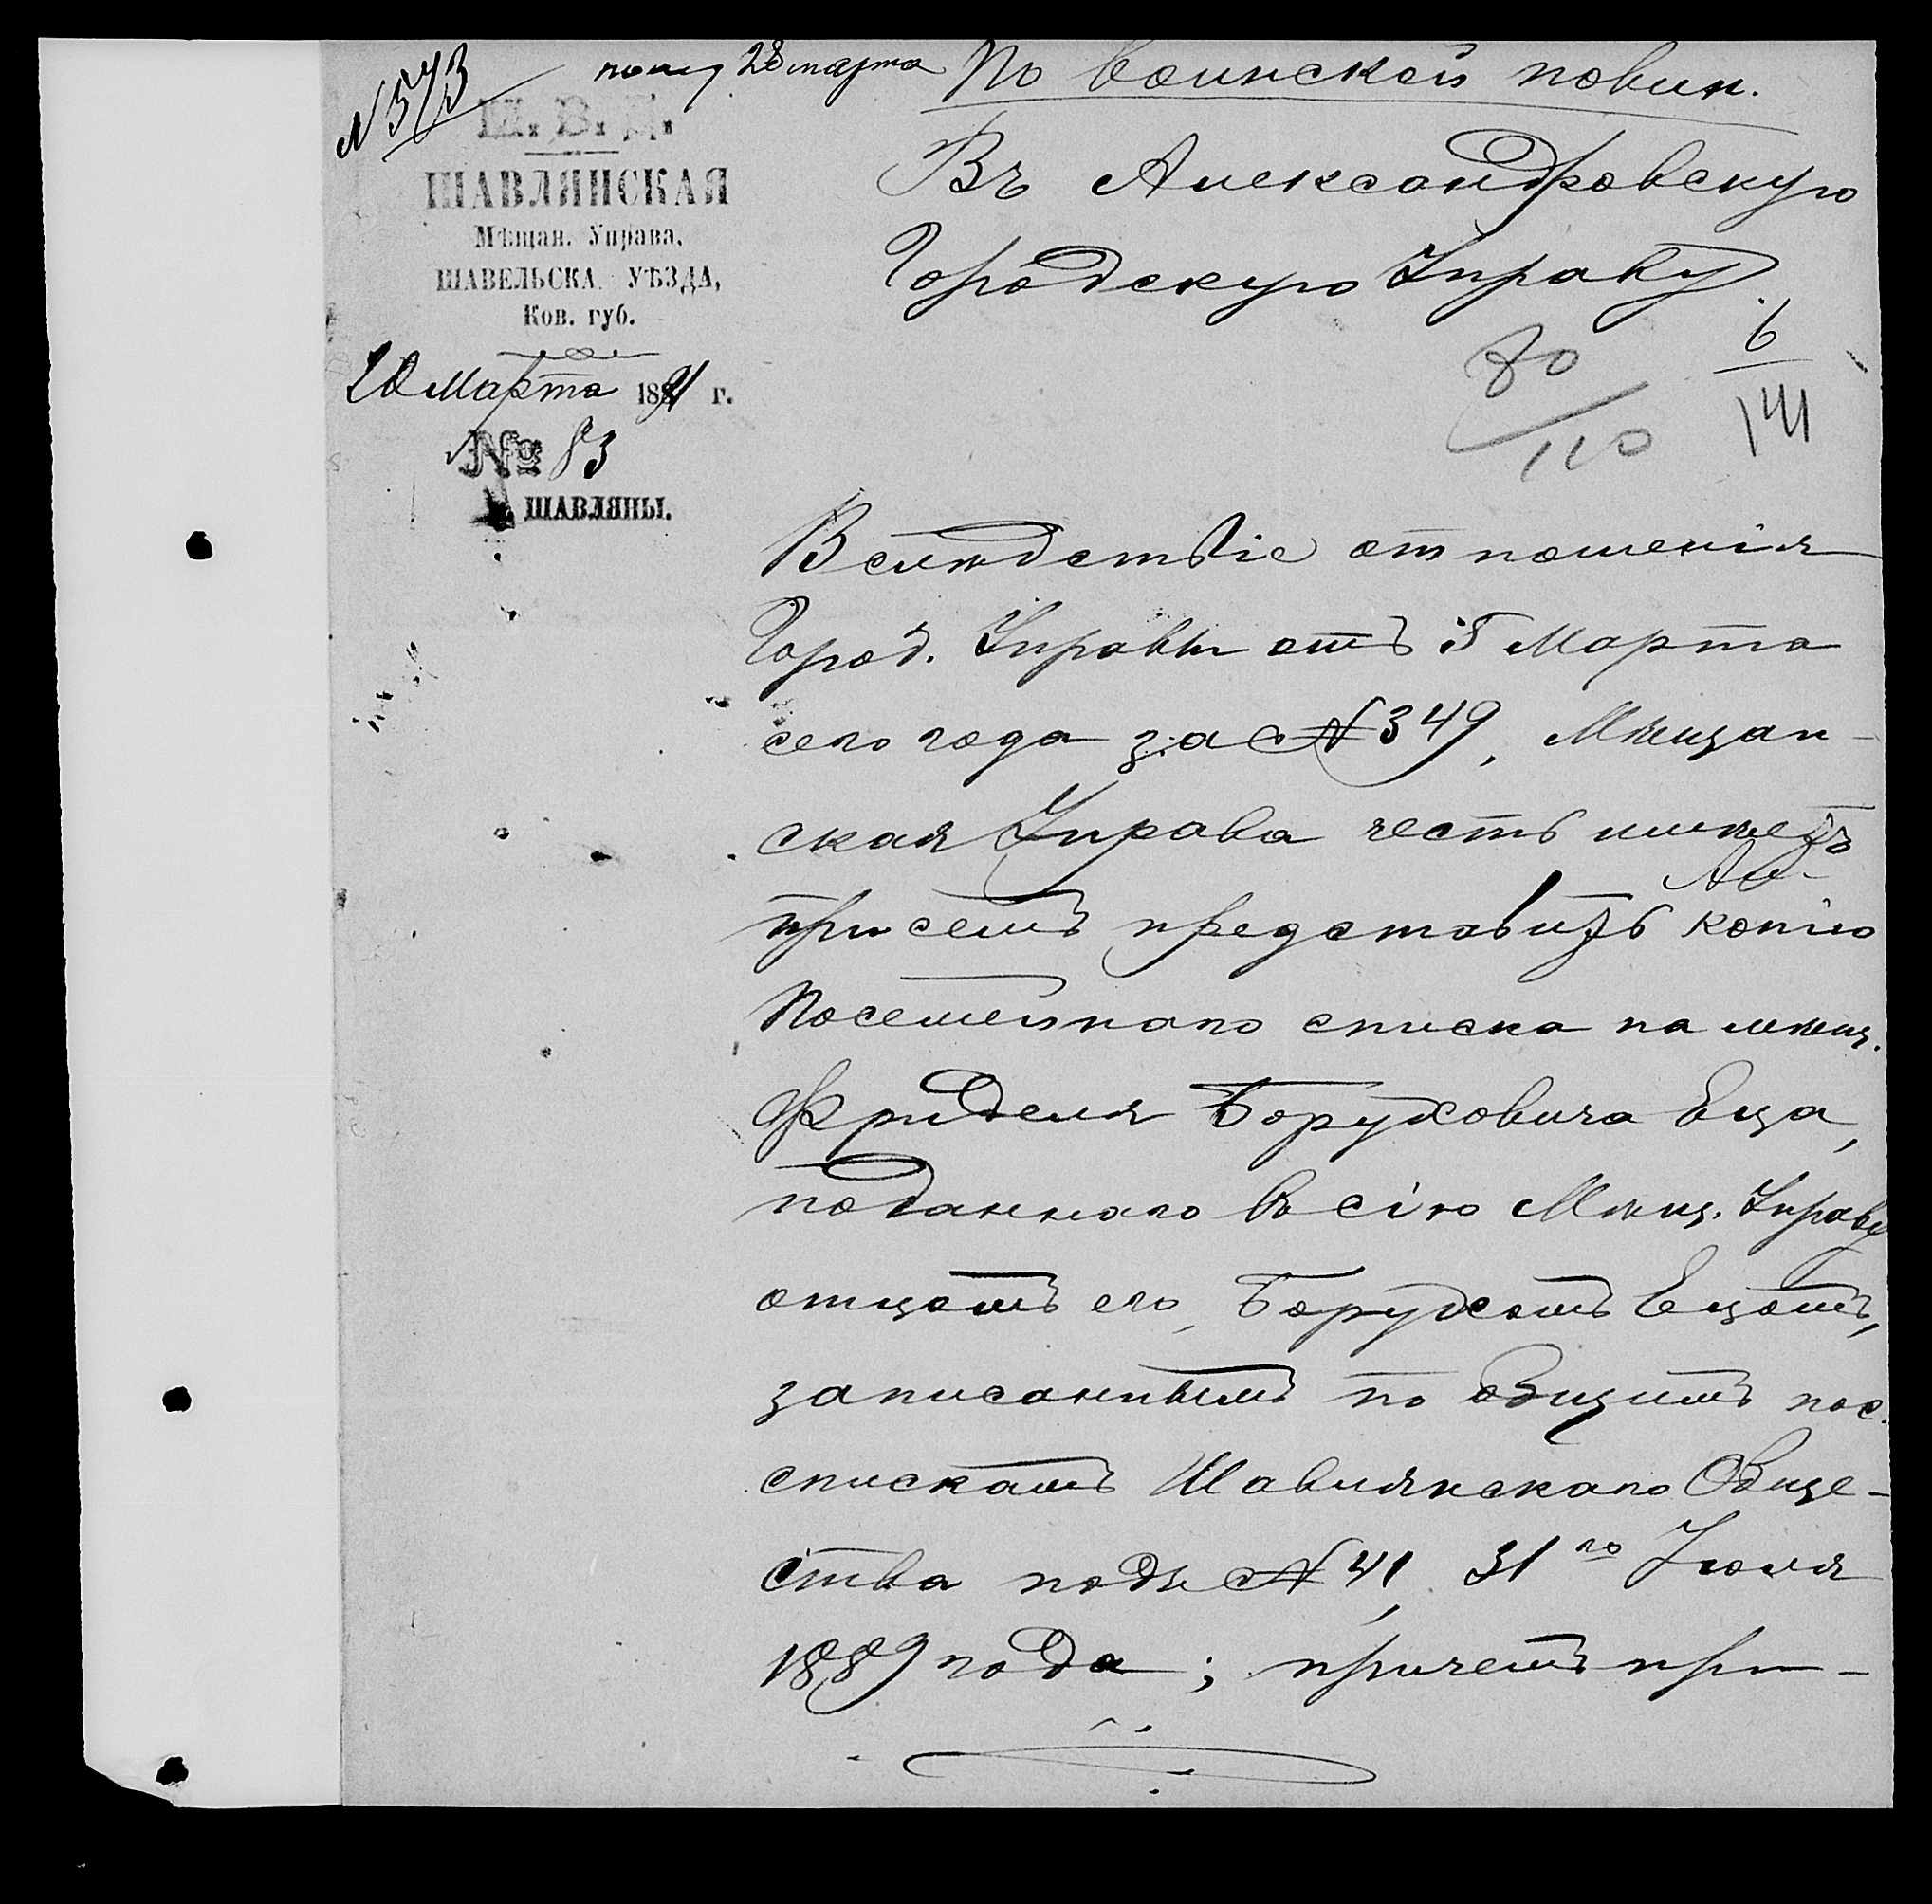 № 573
получ 28 марта
По воинской повин.
М. В. Д.
ШАВЛЯНСКАЯ
Мѣщан. Управа,
ШАВЕЛЬСКА. УѢЗДА,
Ков. губ.
20 Марта 1891 г.
№ 83
ШАВЛЯНЫ.
Въ Александровскую
Городскую Управу
6
141
80
110
Вслѣдствіе отношенія
Город. Управы отъ 5 Марта
сего года за № 349, Мѣщан-
ская Управа честь имѣетъ
при семъ представить копію
Посемейнаго списка на мѣщ.
Фриделя Боруховича Еца,
поданнаго въ сію Мѣщ. Управу
отцомъ его, Борухомъ Ецомъ,
записаннымъ по общимъ пос.
спискамъ Шавлянскаго Обще-
ства подъ № 41, 31го Іюля
1889 года; причемъ при-